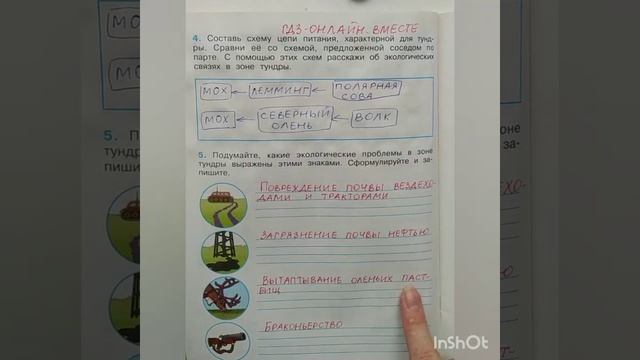 ГДЗ-ОНЛАЙН ВМЕСТЕ
4. Составь схему цепи питания, характерной для тунд-
ры. Сравни её со схемой, предложенной соседом по
парте. С помощью этих схем расскажи об экологических
связях в зоне тундры.
МОХ ← ЛЕММИНГ ← ПОЛЯРНАЯ
СОВА
МОХ ← СЕВЕРНЫЙ ОЛЕНЬ ← ВОЛК
5. Подумайте, какие экологические проблемы в зоне
тундры выражены этими знаками. Сформулируйте и за-
пишите.
ПОВРЕЖДЕНИЕ ПОЧВЫ ВЕЗДЕХО-
ДАМИ И ТРАКТОРАМИ
ЗАГРЯЗНЕНИЕ ПОЧВЫ НЕФТЬЮ
ВЫТАПТЫВАНИЕ ОЛЕНЬИХ ПАСТ-
БИЩ
БРАКОНЬЕРСТВО
InShOt